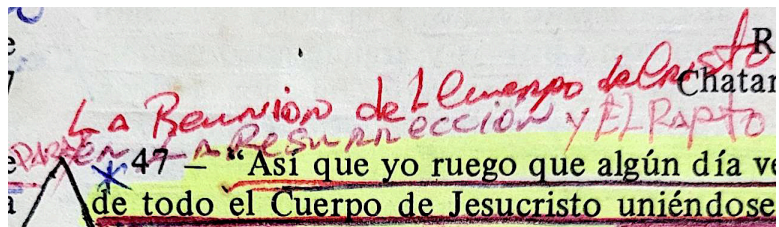 R
Chatar
La Reunion del Cuerpo de Cristo
PARA en LA RESURRECCION y EL RAPTO
47 — “Así que yo ruego que algún día ve
de todo el Cuerpo de Jesucristo uniéndose